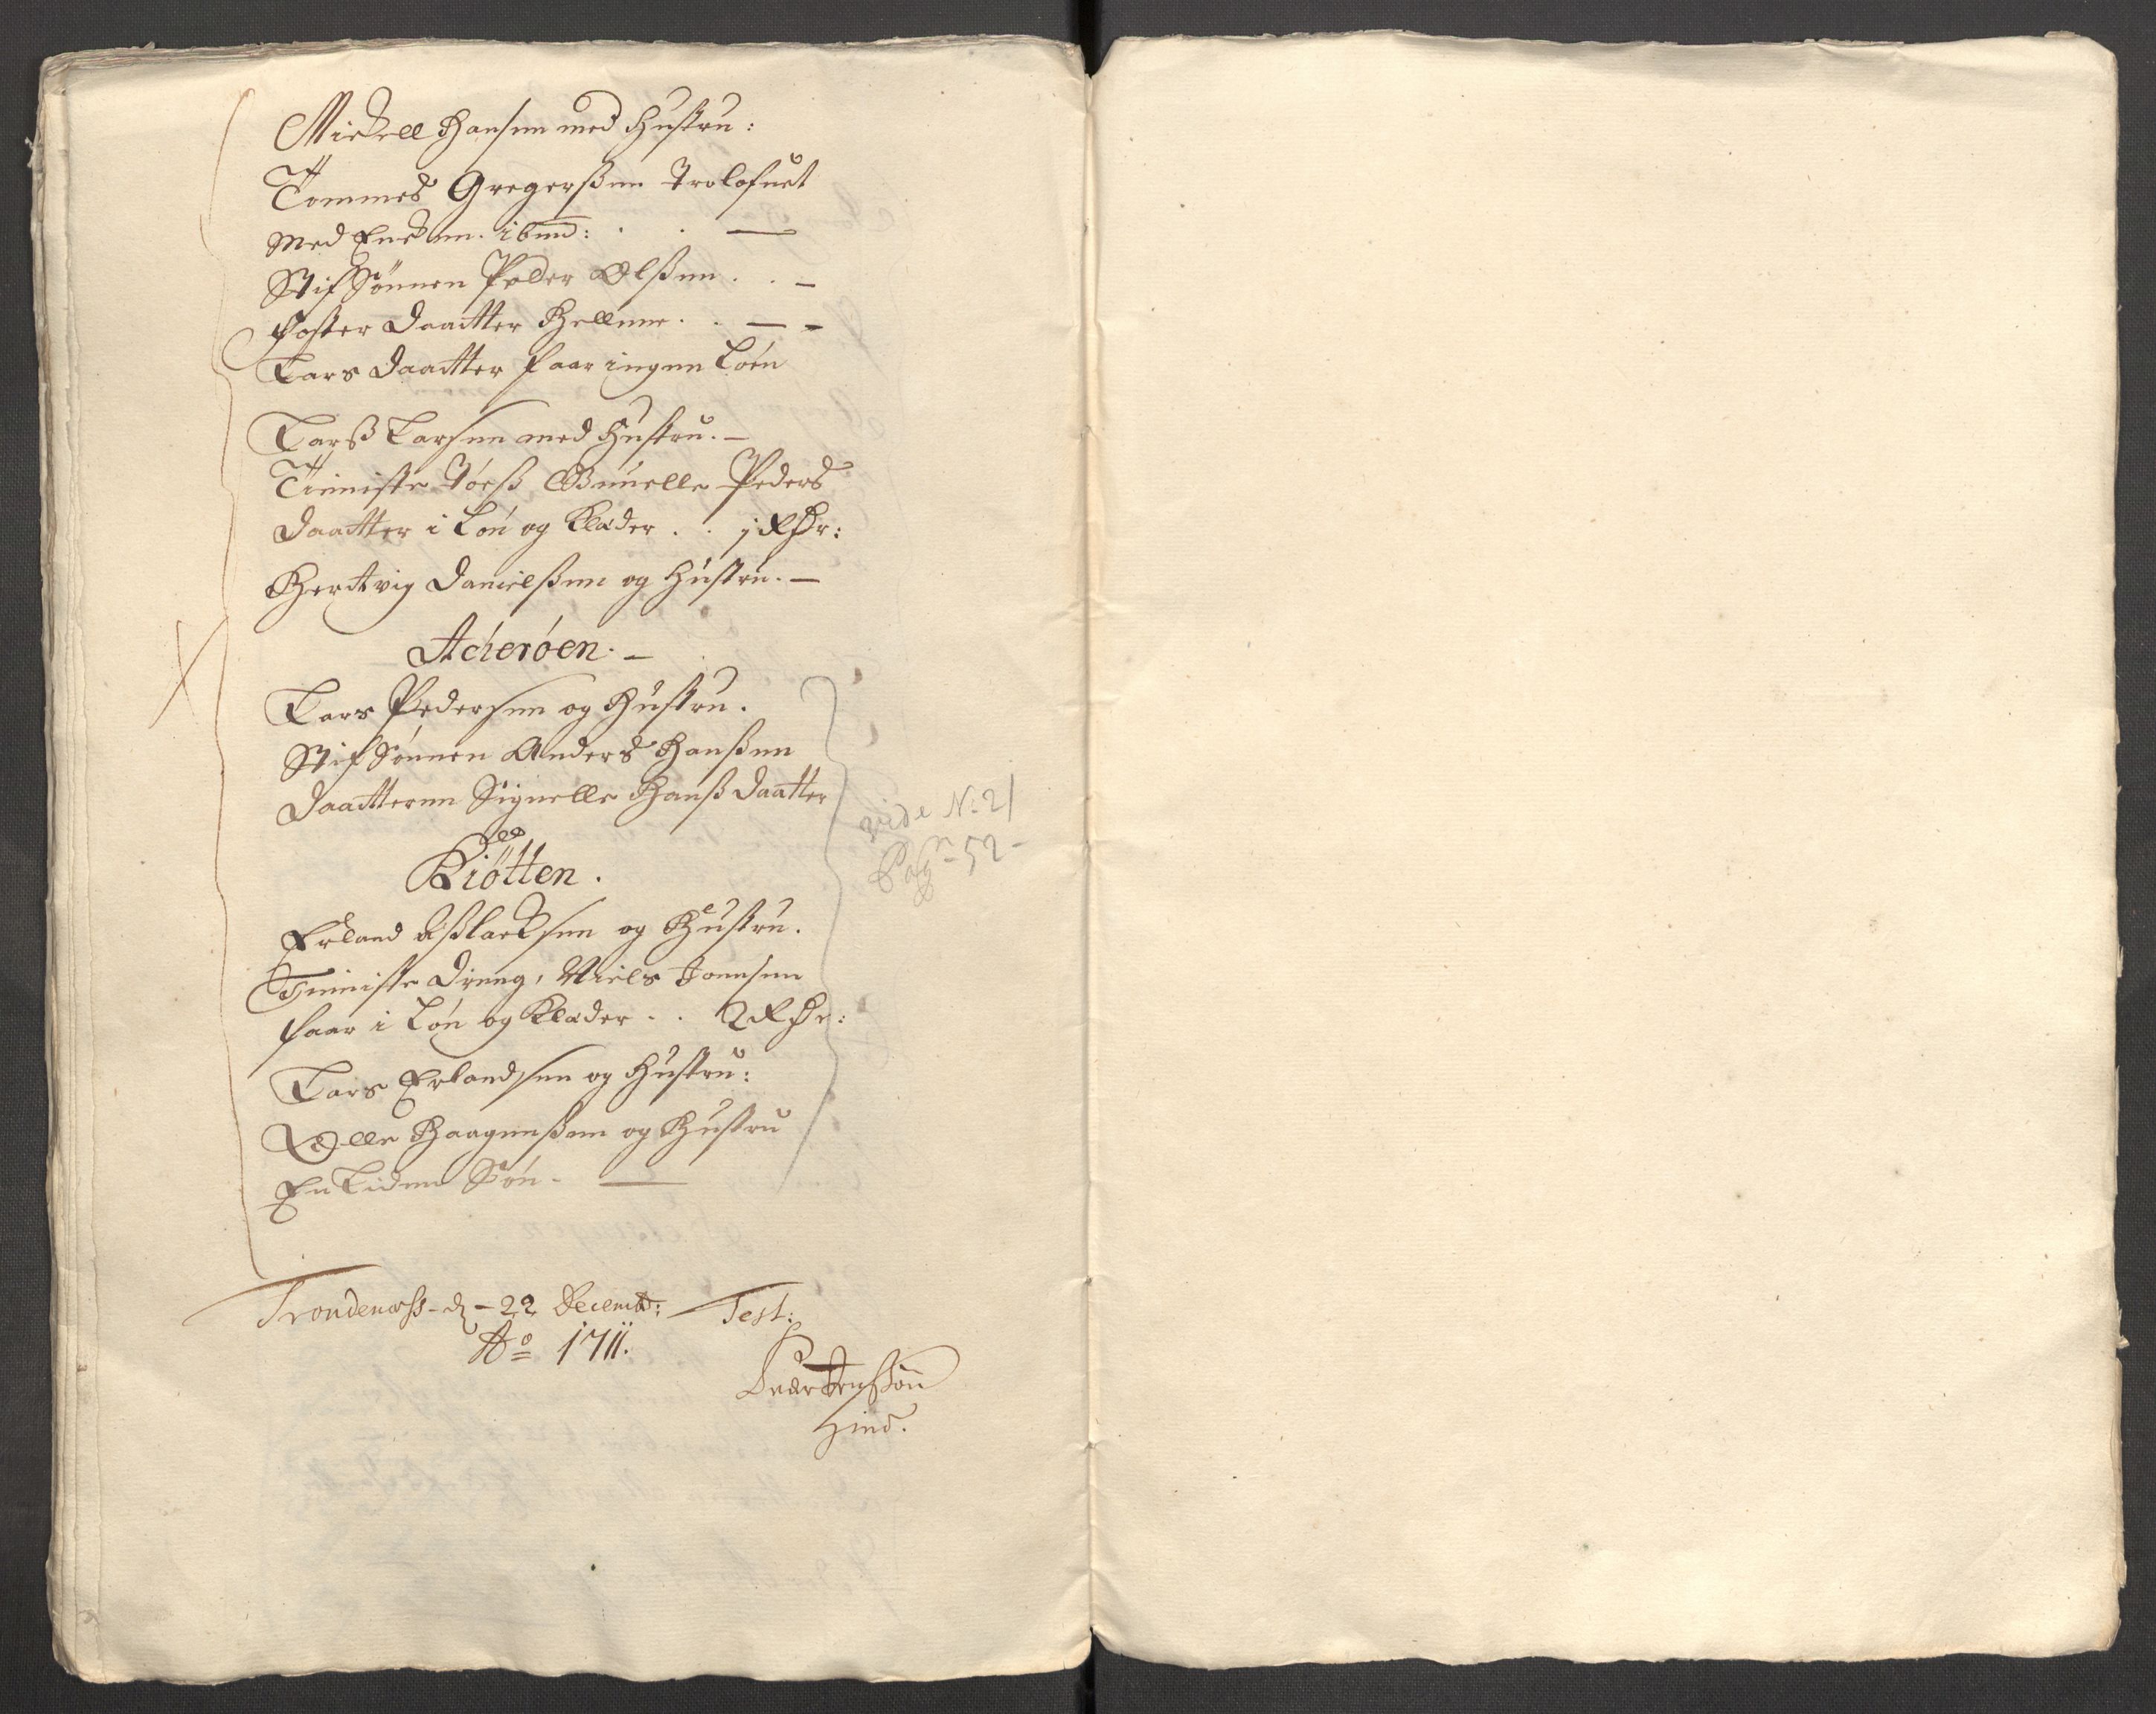 Mickell Hansen med Hustru:
Tommes Gregerssen Trolofuet
Med Encken ibmd:
Stif Sönnen Peder Olssen
Foster Daatter Hellene
Lars Daatter faar ingen Løen
Larss Larsen med Hustru.
Tieniste Tøess Gunelle Peders
Daatter i Løn og Klæder . . 1 Rdr:
Hertvig Danielssen og Hustru.
Acherøen.
Lars Pedersen og Hustru.
Stif Sønnen Anders Hanssen
Daatteren Signelle Hanss Daatter
Kiøtten.
Erland Asslacksen og Hustru.
Tieniste Dreng, Niels Jonnsen
faar i Løn og Klæder . . 2 Rdr:
Lars Erlandsen og Hustru:
Olle Haagenssen og Hustru
En Liden Søn
vide No: 21
Pagn 52
Trondenæss d 22 Decembr: Test:
Ao 1711.
Iver Jenssøn
Hind.